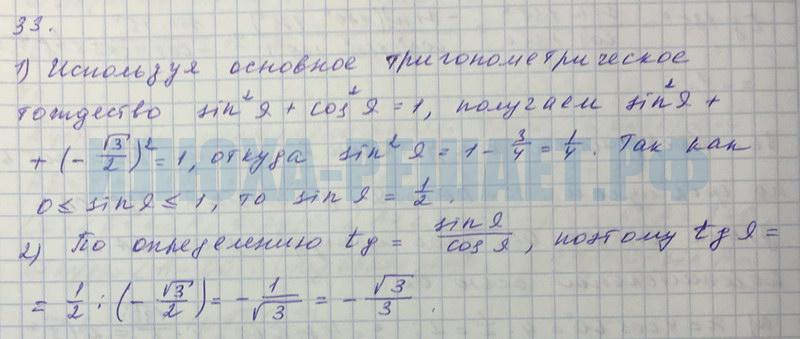 33.
1) Используя основное тригонометрическое
тождество sin²α + cos²α = 1, получаем sin²α +
+ (- √3/2)² = 1, откуда sin²α = 1 - 3/4 = 1/4. Так как
0 ≤ sin α ≤ 1, то sin α = 1/2.
2) По определению tg = sin α/cos α, поэтому tg α =
= 1/2 : (- √3/2) = - 1/√3 = - √3/3.